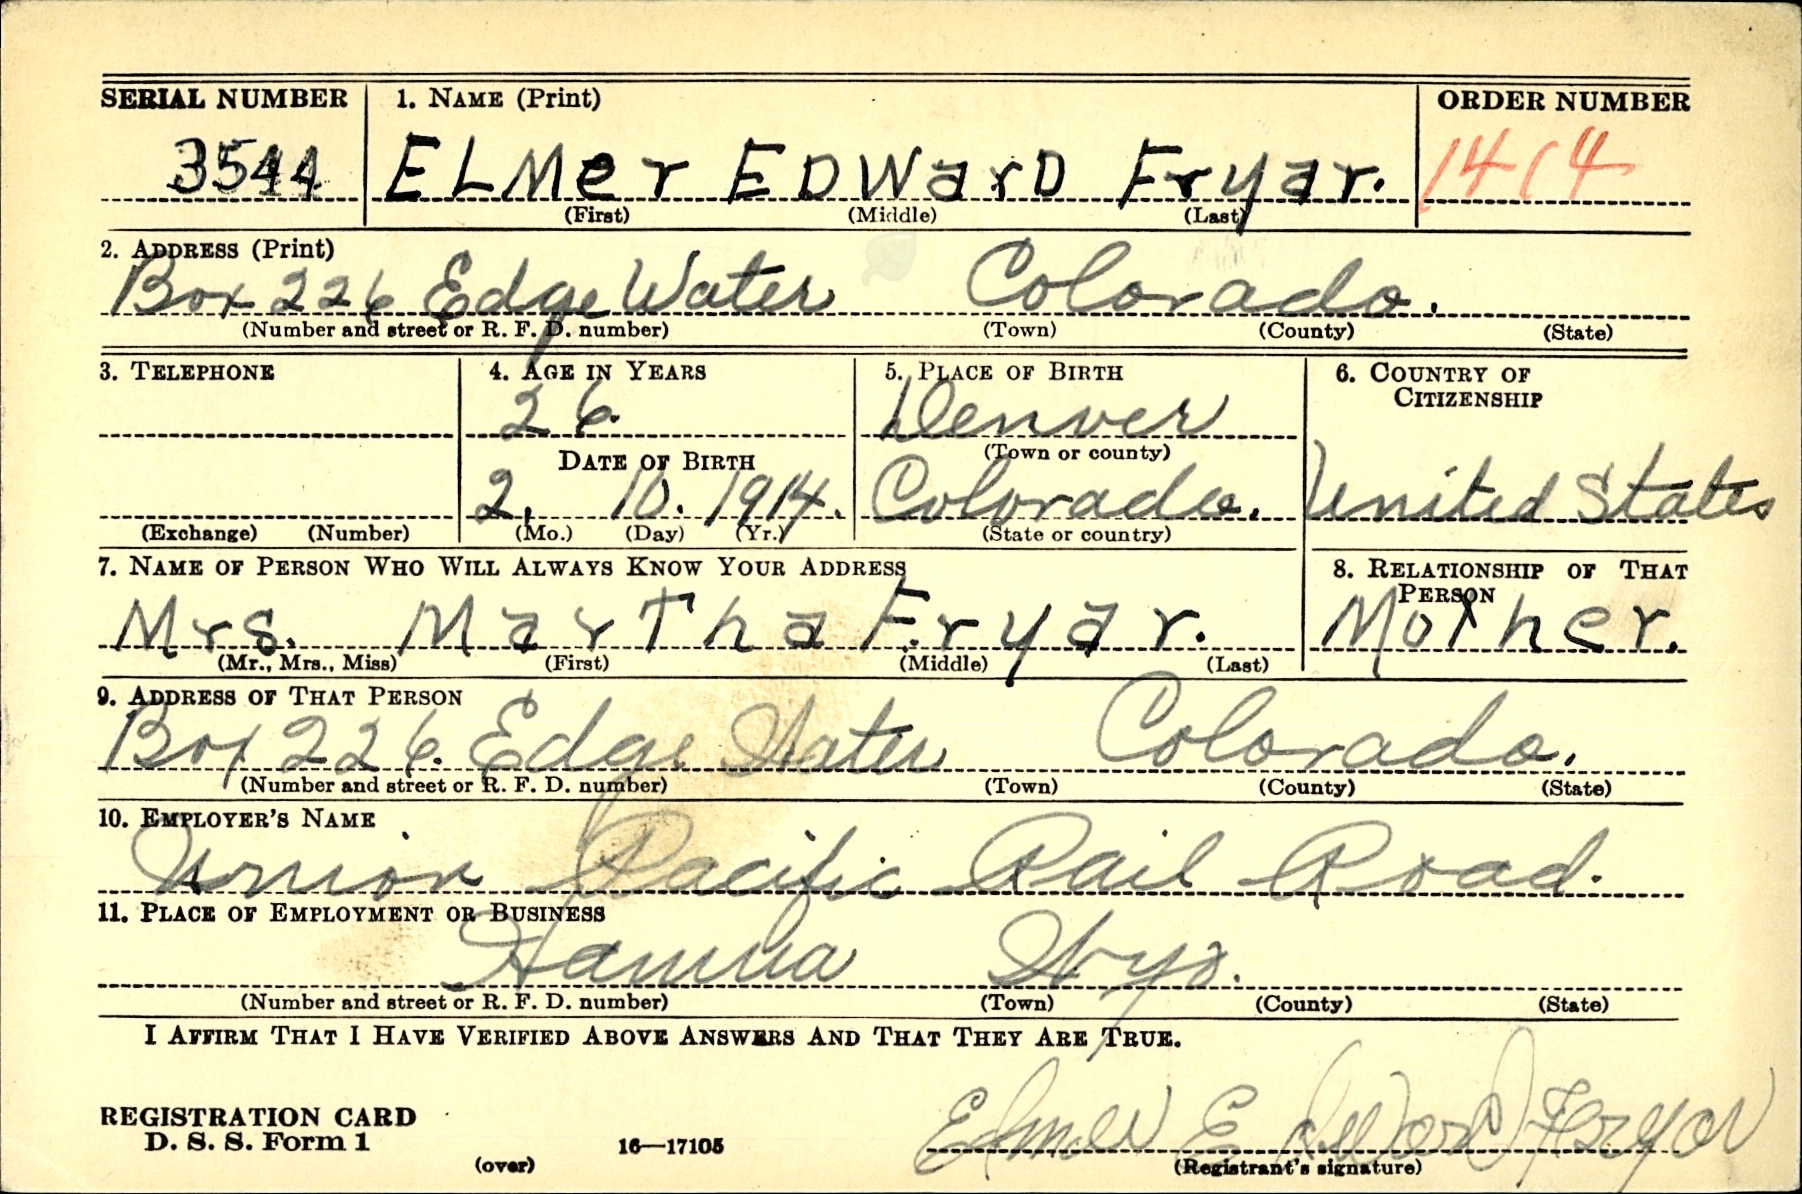 SERIAL NUMBER 1. NAME (Print) ORDER NUMBER
3544 ELMer EDWarD Fryar. 1414
(First) (Middle) (Last)
2. ADDRESS (Print)
Box 226 Edge Water Colorado.
(Number and street or R. F. D. number) (Town) (County) (State)
3. TELEPHONE 4. AGE IN YEARS 5. PLACE OF BIRTH 6. COUNTRY OF CITIZENSHIP
26. Denver
DATE OF BIRTH (Town or county)
2. 10. 1914. Colorado. United States
(Exchange) (Number) (Mo.) (Day) (Yr.) (State or country)
7. NAME OF PERSON WHO WILL ALWAYS KNOW YOUR ADDRESS 8. RELATIONSHIP OF THAT PERSON
Mrs. MarTha Fryar. Mother.
(Mr., Mrs., Miss) (First) (Middle) (Last)
9. ADDRESS OF THAT PERSON
Box 226. Edge Water Colorado.
(Number and street or R. F. D. number) (Town) (County) (State)
10. EMPLOYER'S NAME
Union Pacific Rail Road.
11. PLACE OF EMPLOYMENT OR BUSINESS
Hanna Wyo.
(Number and street or R. F. D. number) (Town) (County) (State)
I AFFIRM THAT I HAVE VERIFIED ABOVE ANSWERS AND THAT THEY ARE TRUE.
Elmer Edward Fryar
REGISTRATION CARD
D. S. S. Form 1 16—17105
(over) (Registrant's signature)